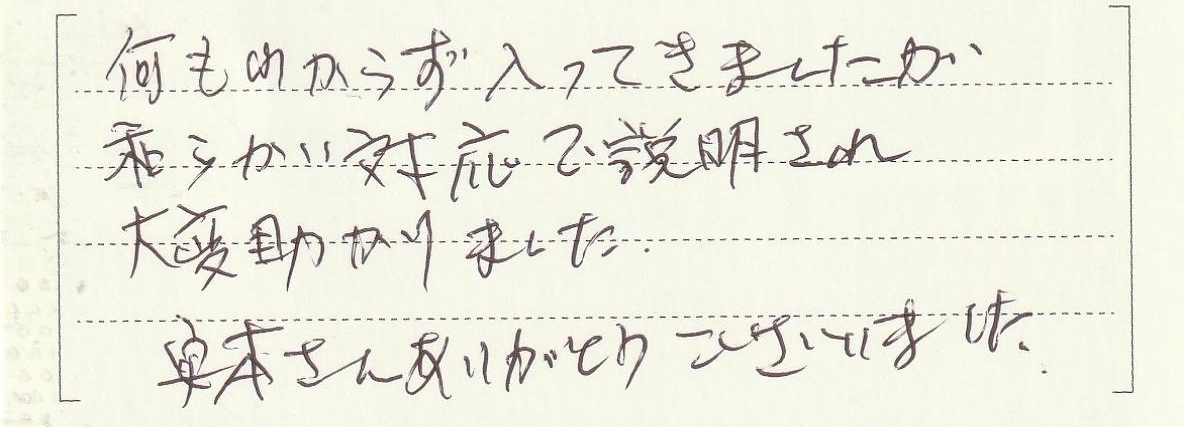 何もわからず入ってきましたが
柔らかい対応で説明され
大変助かりました.
奥本さんありがとうございました.